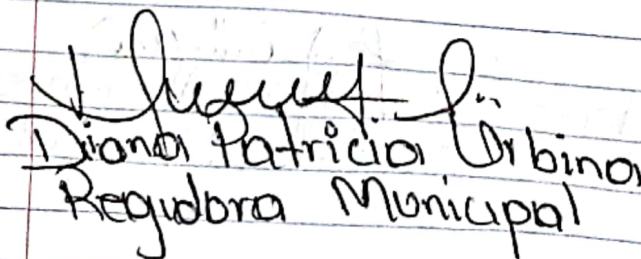 Diana Patricia Urbina
Regidora Municipal